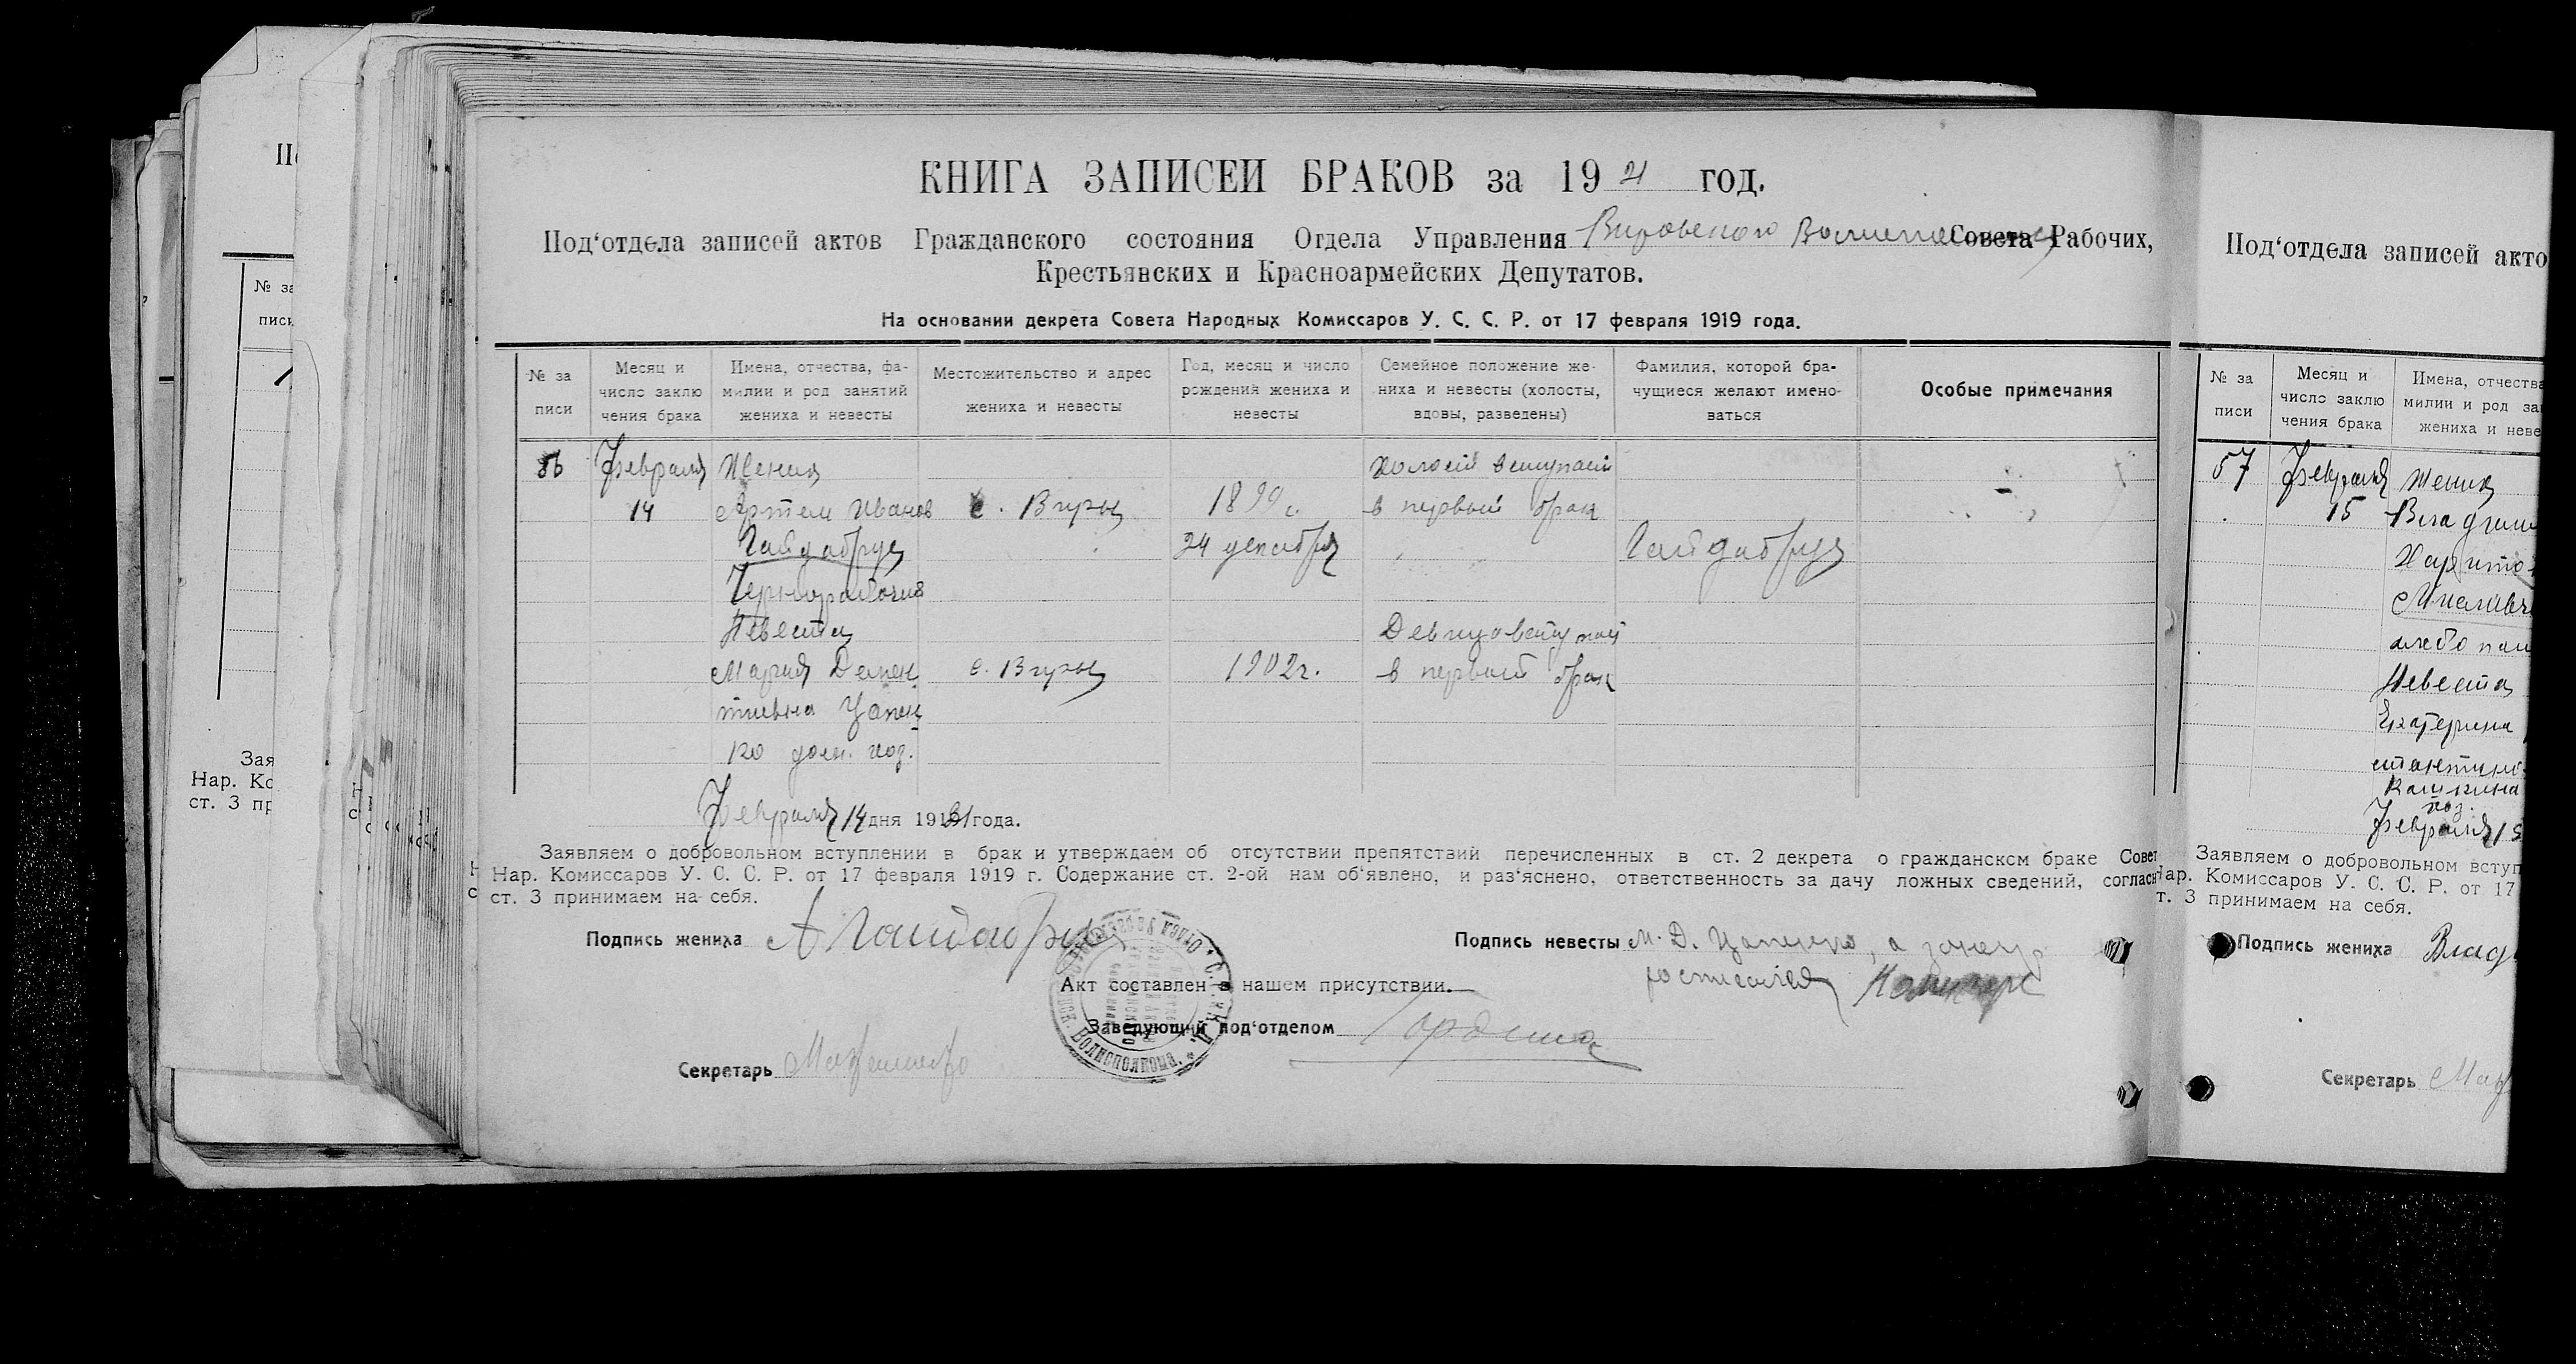 КНИГА ЗАПИСЕЙ БРАКОВ за 1921 год.
Под‘отдела записей актов Гражданского состояния Отдела Управления Совета Рабочих,
Крестьянских и Красноармейских Депутатов.
На основании декрета Совета Народных Комиссаров У. С. С. Р. от 17 февраля 1919 года.
№ за
писи
Месяц и
число заклю
чения брака
Имена, отчества, фа-
милии и род занятий
жениха и невесты
Местожительство и адрес
жениха и невесты
Год, месяц и число
рождения жениха и
невесты
Семейное положение же-
ниха и невесты (холосты,
вдовы, разведены)
Фамилия, которой бра-
чущиеся желают имено-
ваться
Особые примечания
56 Февраля Жених Холост вступает
14 Артем Иванов с. Виры 1899 г. в первый брак
Гайдабрус 24 декабря Гайдабрус
Чернорабочий
Невеста Девица вступает
Мария Демен с. Виры 1902 г. в первый брак
тиевна Цапен
ко дом. хоз.
Февраля 14 дня 1921 года.
Заявляем о добровольном вступлении в брак и утверждаем об отсутствии препятствий перечисленных в ст. 2 декрета о гражданском браке Совет
Нар. Комиссаров У. С. С. Р. от 17 февраля 1919 г. Содержание ст. 2-ой нам об‘явлено, и раз‘яснено, ответственность за дачу ложных сведений, согласн
ст. 3 принимаем на себя.
Подпись жениха А Гайдабрус
Подпись невесты М. Д. Цапенко, а за нее
Акт составлен в нашем присутствии.
Заведующий под‘отделом
Секретарь
Волисполкома.
Под‘отдела записей акто
№ за
писи
Месяц и
число заклю
чения брака
Имена, отчества
милии и род за
жениха и неве
57 Февраля Жених
15 Влади
Харито
Невеста
Екатерина
Февраля 15
Заявляем о добровольном вступ
Нар. Комиссаров У. С. С. Р. от 17
т. 3 принимаем на себя.
Подпись жениха Влад
Секретарь
№ за
писи
Зая
Нар. Ко
ст. 3 пр